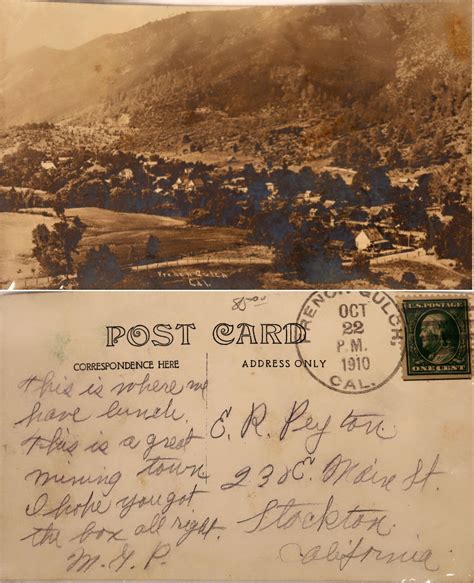 French Gulch
Cal.
85.00
POST CARD
CORRESPONDENCE HERE
ADDRESS ONLY
FRENCH GULCH,
OCT
22
P.M.
1910
CAL.
U.S. POSTAGE
ONE CENT
this is where we
have lunch.
this is a great
mining town
I hope you got
the box all right.
E. R. Peyton
238 E. Main St.
Stockton
California